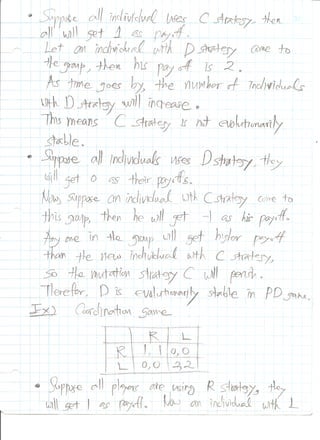 • Suppose all individual uses C strategy, then
all will get 1 as payoff.
Let an individual with D strategy come to
the group, then his pay off is 2.
As time goes by, the number of individuals
with D strategy will increase.
This means C strategy is not evolutionarily
stable.
• Suppose all individuals uses D strategy, they
will get 0 as their payoffs.
Now, suppose an individual with C strategy come to
this group, then he will get -1 as his payoff.
Any one in the group will get higher payoff
than the new individual with C strategy,
so the mutation strategy C will perish.
Therefor, D is evolutionarily stable in PD game.
Ex) Coordination game
R L
R 1,1 0,0
L 0,0 2,2
• Suppose all players are using R strategy, they
will get 1 as payoff. Now an individual with L